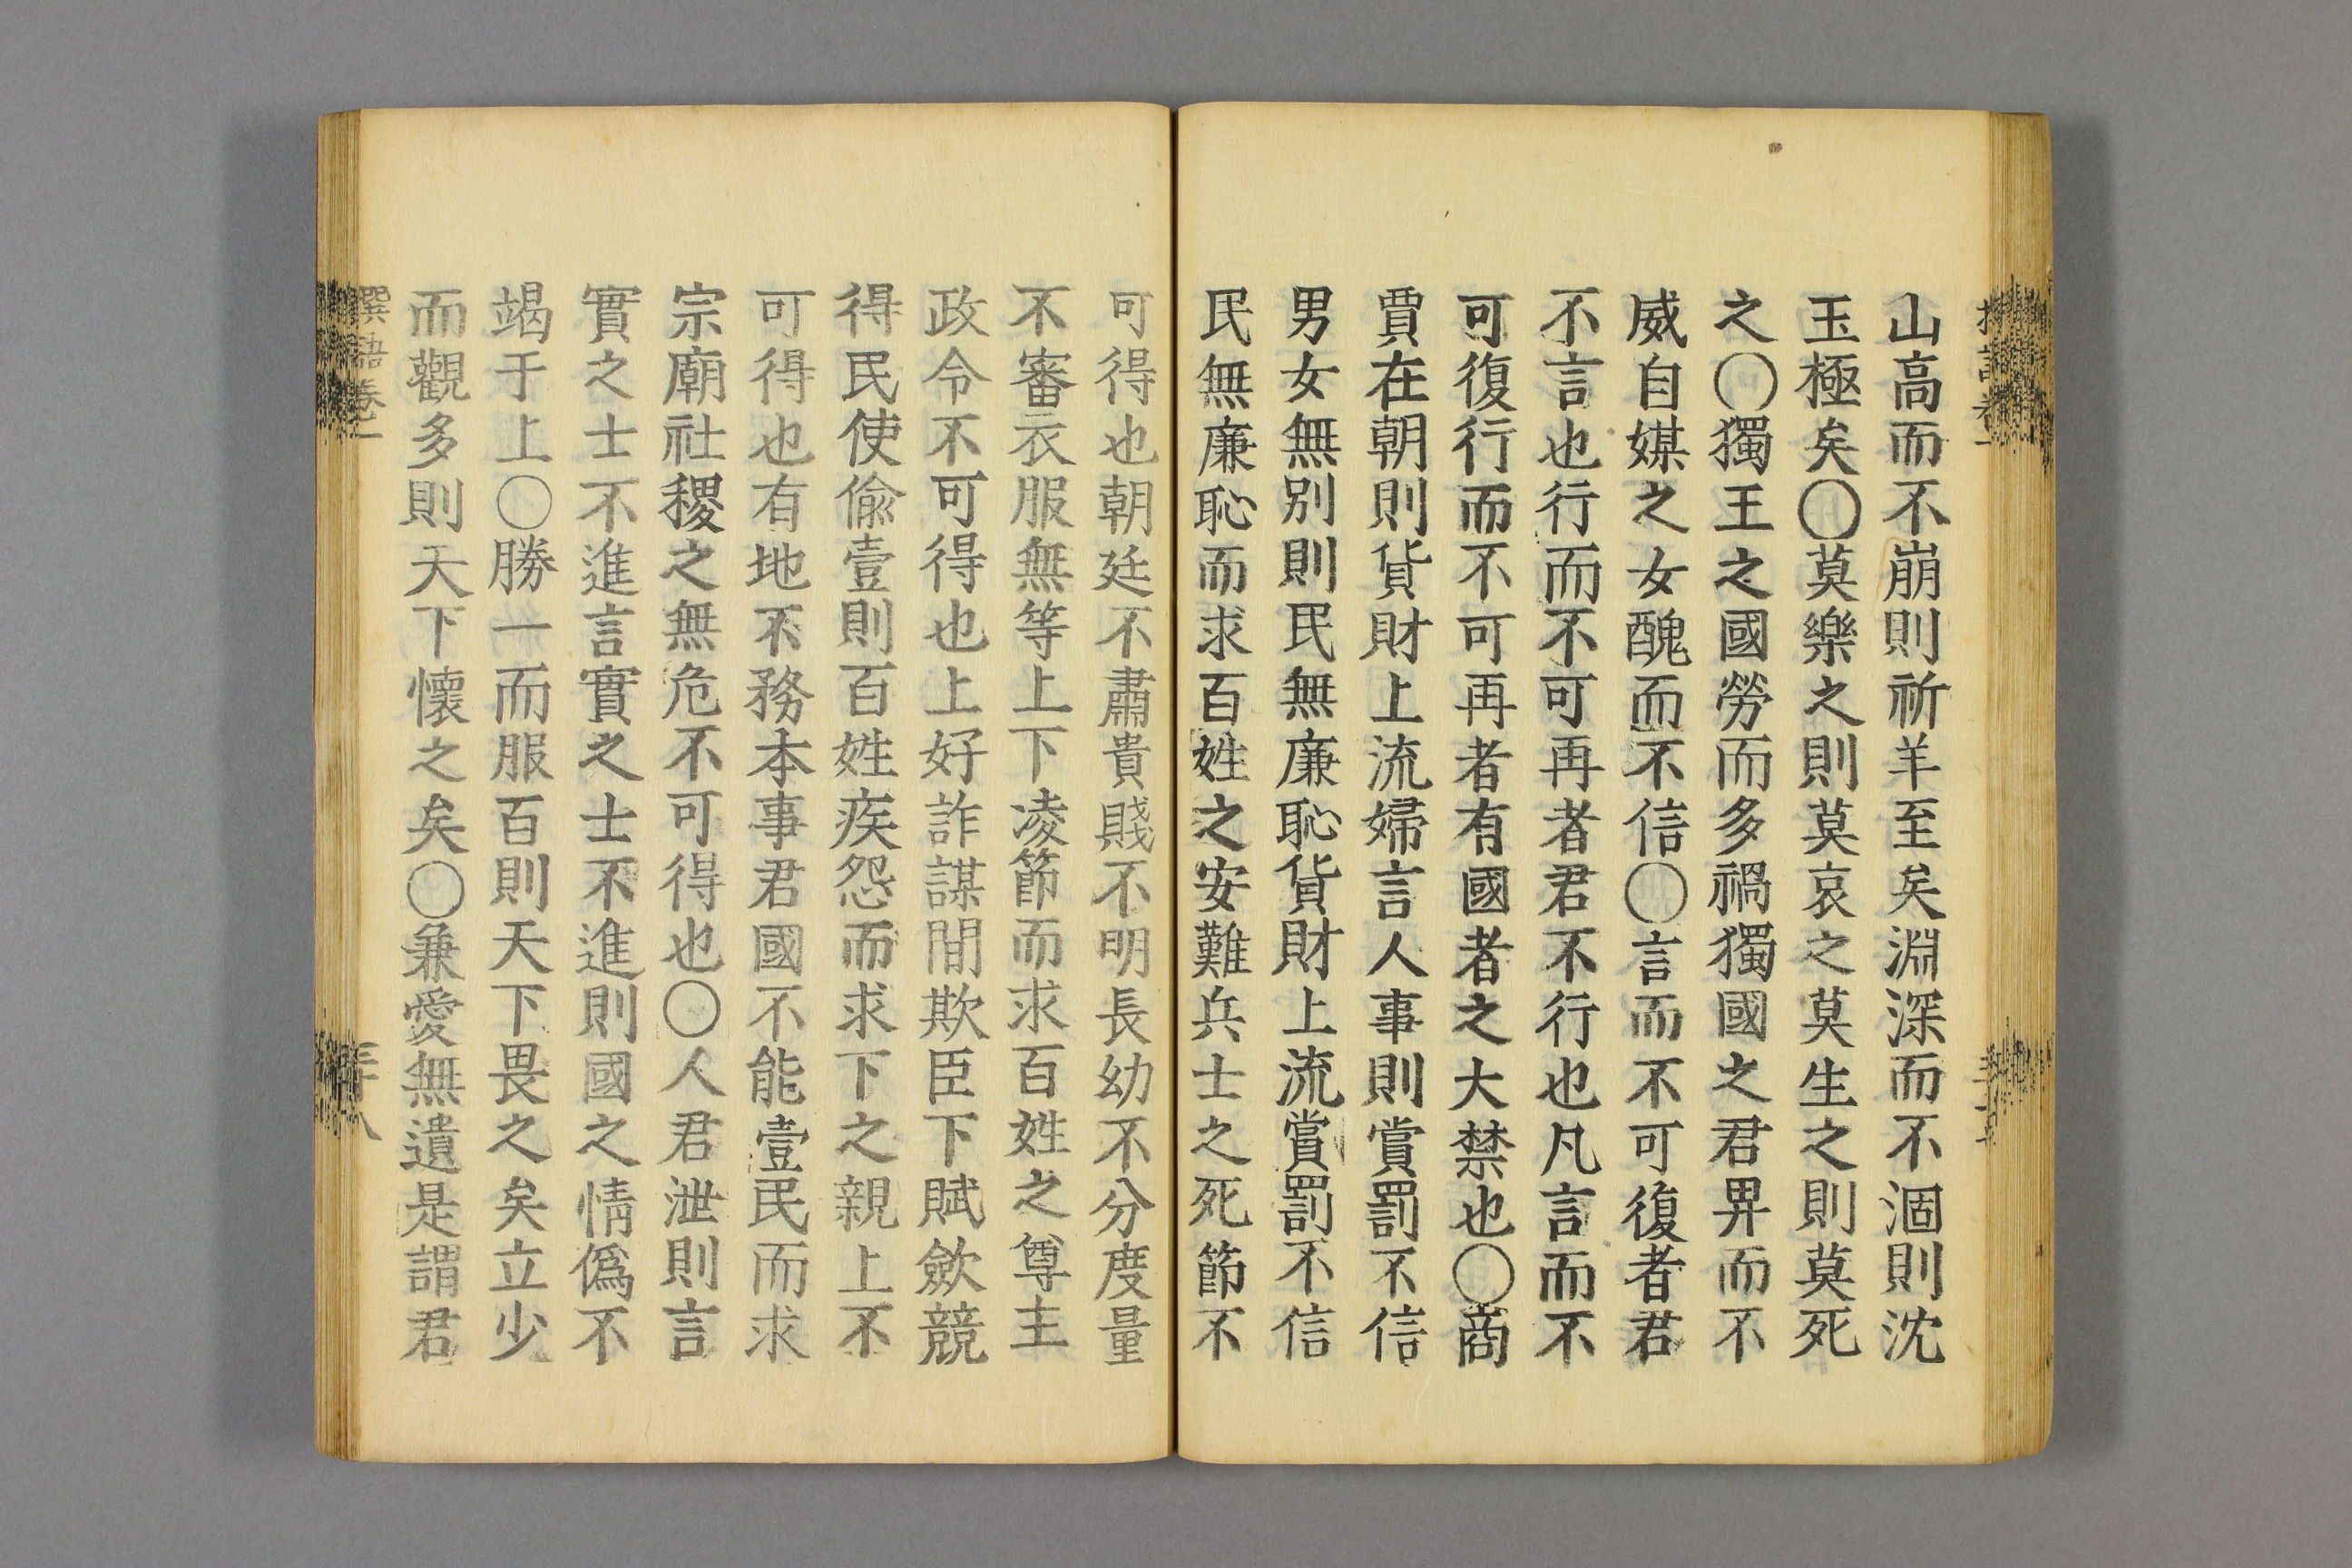 山高而不崩則祈羊至矣淵深而不涸則沈
玉極矣○莫樂之則莫哀之莫生之則莫死
之○獨王之國勞而多禍獨國之君畀而不
威自媒之女醜而不信○言而不可復者君
不言也行而不可再者君不行也凡言而不
可復行而不可再者有國者之大禁也○商
賈在朝則貨財上流婦言人事則賞罰不信
男女無別則民無廉恥貨財上流賞罰不信
民無廉恥而求百姓之安難兵士之死節不
可得也朝廷不肅貴賤不明長幼不分度量
不審衣服無等上下凌節而求百姓之尊主
政令不可得也上好詐謀閒欺臣下賦斂競
得民使偷壹則百姓疾怨而求下之親上不
可得也有地不務本事君國不能壹民而求
宗廟社稷之無危不可得也○人君泄則言
實之士不進言實之士不進則國之情僞不
竭于上○勝一而服百則天下畏之矣立少
而觀多則天下懷之矣○兼愛無遺是謂君
撰語卷一
三十八